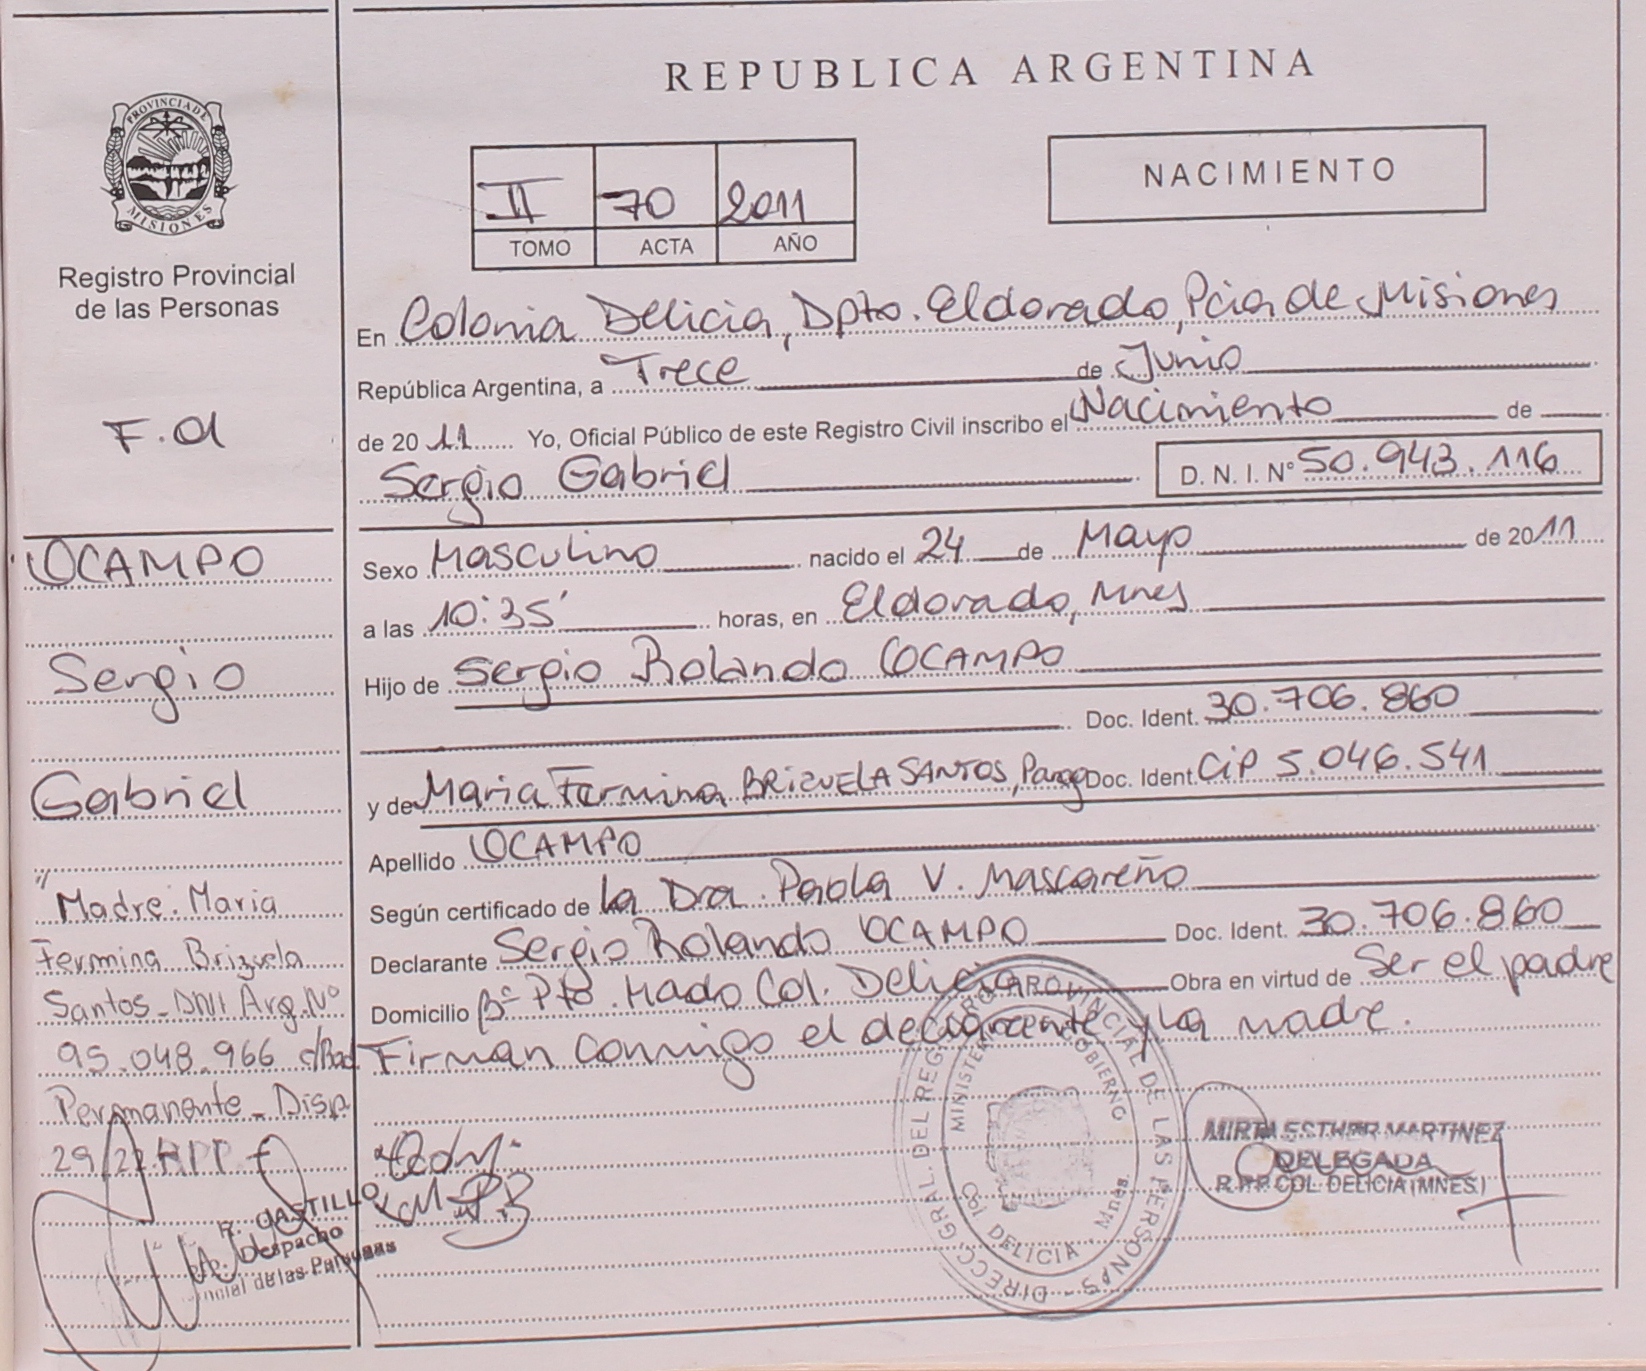 REPUBLICA ARGENTINA
PROVINCIA DE
MISIONES
Registro Provincial
de las Personas
II 70 2011
TOMO ACTA AÑO
NACIMIENTO
En Colonia Delicia, Dpto. Eldorado, Pcia de Misiones
República Argentina, a Trece de Junio
de 2011 Yo, Oficial Público de este Registro Civil inscribo el Nacimiento de
Sergio Gabriel D. N. I. Nº 50.943.116
Sexo Masculino nacido el 24 de Mayo de 2011
a las 10:35' horas, en Eldorado, Mnes
Hijo de Sergio Rolando OCAMPO
Doc. Ident. 30.706.860
y de Maria Fermina BRIZUELA SANTOS, Parag Doc. Ident. CiP 5.046.541
Apellido OCAMPO
Según certificado de la Dra. Paola V. Mascareño
Declarante Sergio Rolando OCAMPO Doc. Ident. 30.706.860
Domicilio Bº Pto Mado Col. Delicia Obra en virtud de Ser el padre
Firman Conmigo el declarante y la madre.
F.
OCAMPO
Sergio
Gabriel
Madre: Maria
Fermina Brizuela
Santos - DNI Arg. Nº
95.048.966 c/Rad
Permanente - Disp.
29/22
CASTILLO
Despacho
de las Personas
DIRECC. GRAL. DEL REGISTRO PROVINCIAL DE LAS PERSONAS
MINISTERIO GOBIERNO
COL DELICIA - Mnes.
MIRTA ESTHER MARTINEZ
DELEGADA
R.P.P. COL. DELICIA (MNES.)